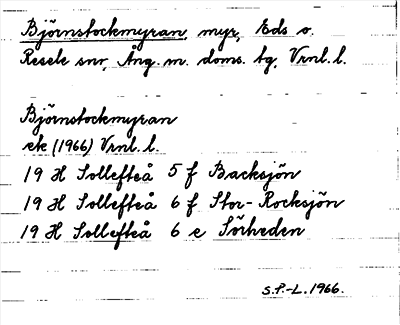 Björnstockmyran, myr, Eds o.
Resele snr, Ång. m. doms. tg, Vrnl. l.
Björnstockmyran
ek (1966) Vrnl. l.
19 H Sollefteå 5 f Backsjön
19 H Sollefteå 6 f Stor-Rocksjön
19 H Sollefteå 6 e Sörheden
S.P.-L. 1966.